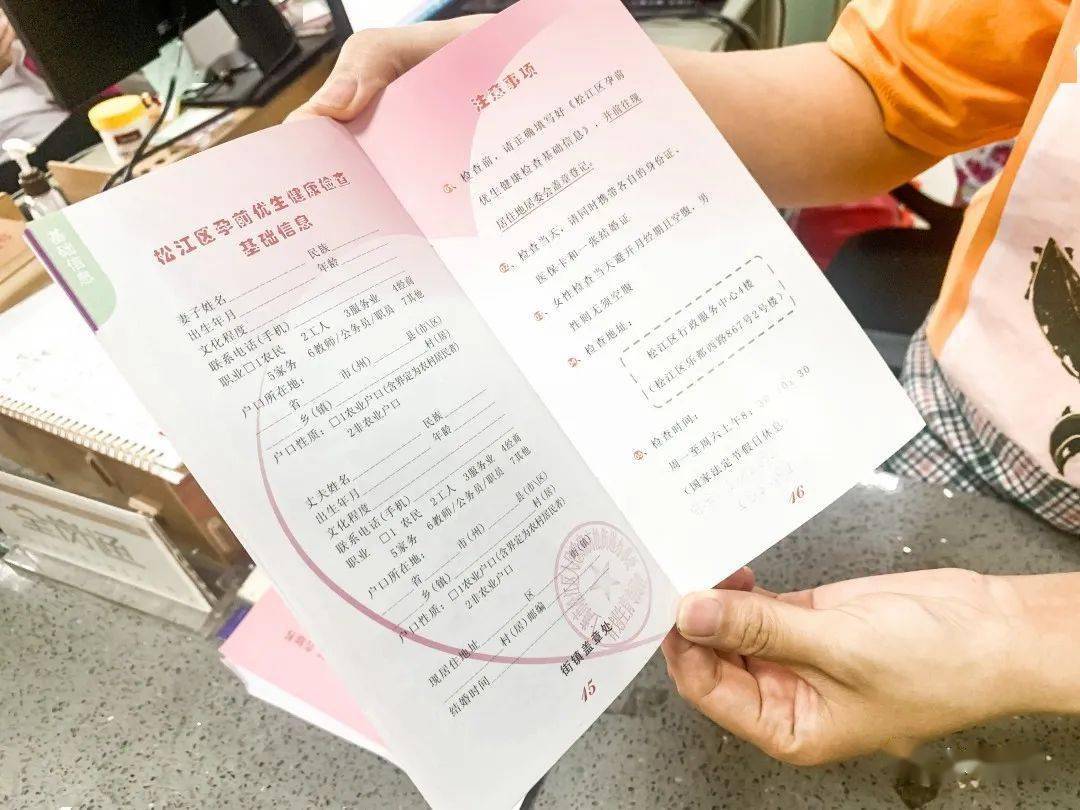 基础信息
松江区孕前优生健康检查
基础信息
妻子姓名 民族
出生年月 年龄
文化程度
联系电话(手机)
职业□1农民 2.工人 3服务业 4经商
5家务 6教师/公务员/职员 7其他
户口所在地:
省 市(州) 县(市\区)
乡(镇) 村(居)
户口性质: □1农业户口(含界定为农村居民者)
2非农业户口
丈夫姓名 民族
出生年月 年龄
文化程度
联系电话(手机)
职业 □1 农民 2.工人 3服务业 4经商
5家务 6教师/公务员/职员 7其他
户口所在地:
省 市(州) 县(市\区)
乡(镇) 村(居)
户口性质: □1农业户口(含界定为农村居民者)
2非农业户口
现居住地址 区 (镇)
村(居)邮编
结婚时间
街镇盖章处
15
注意事项
①、检查前,请正确填写好《松江区孕前
优生健康检查基础信息》,并前往现
居住地居委会盖章登记。
②、检查当天,请同时携带各自的身份证、
医保卡和一张结婚证
③、女性检查当天避开月经期且空腹,男
性则无须空腹
④、检查地址:
松江区行政服务中心4楼
(松江区乐都西路867号2号楼)
⑤、检查时间:
周一至周六上午8:30-10:30
(国家法定节假日休息)
16